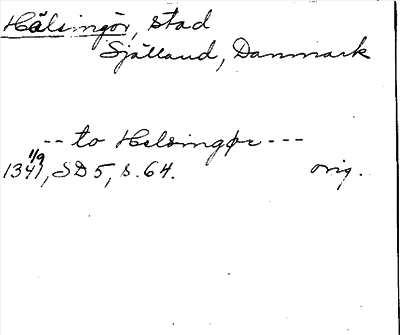 Hälsingör, stad
Själland, Danmark
-- to Helsingør ---
1/9
1341, SD5, s. 64. orig.